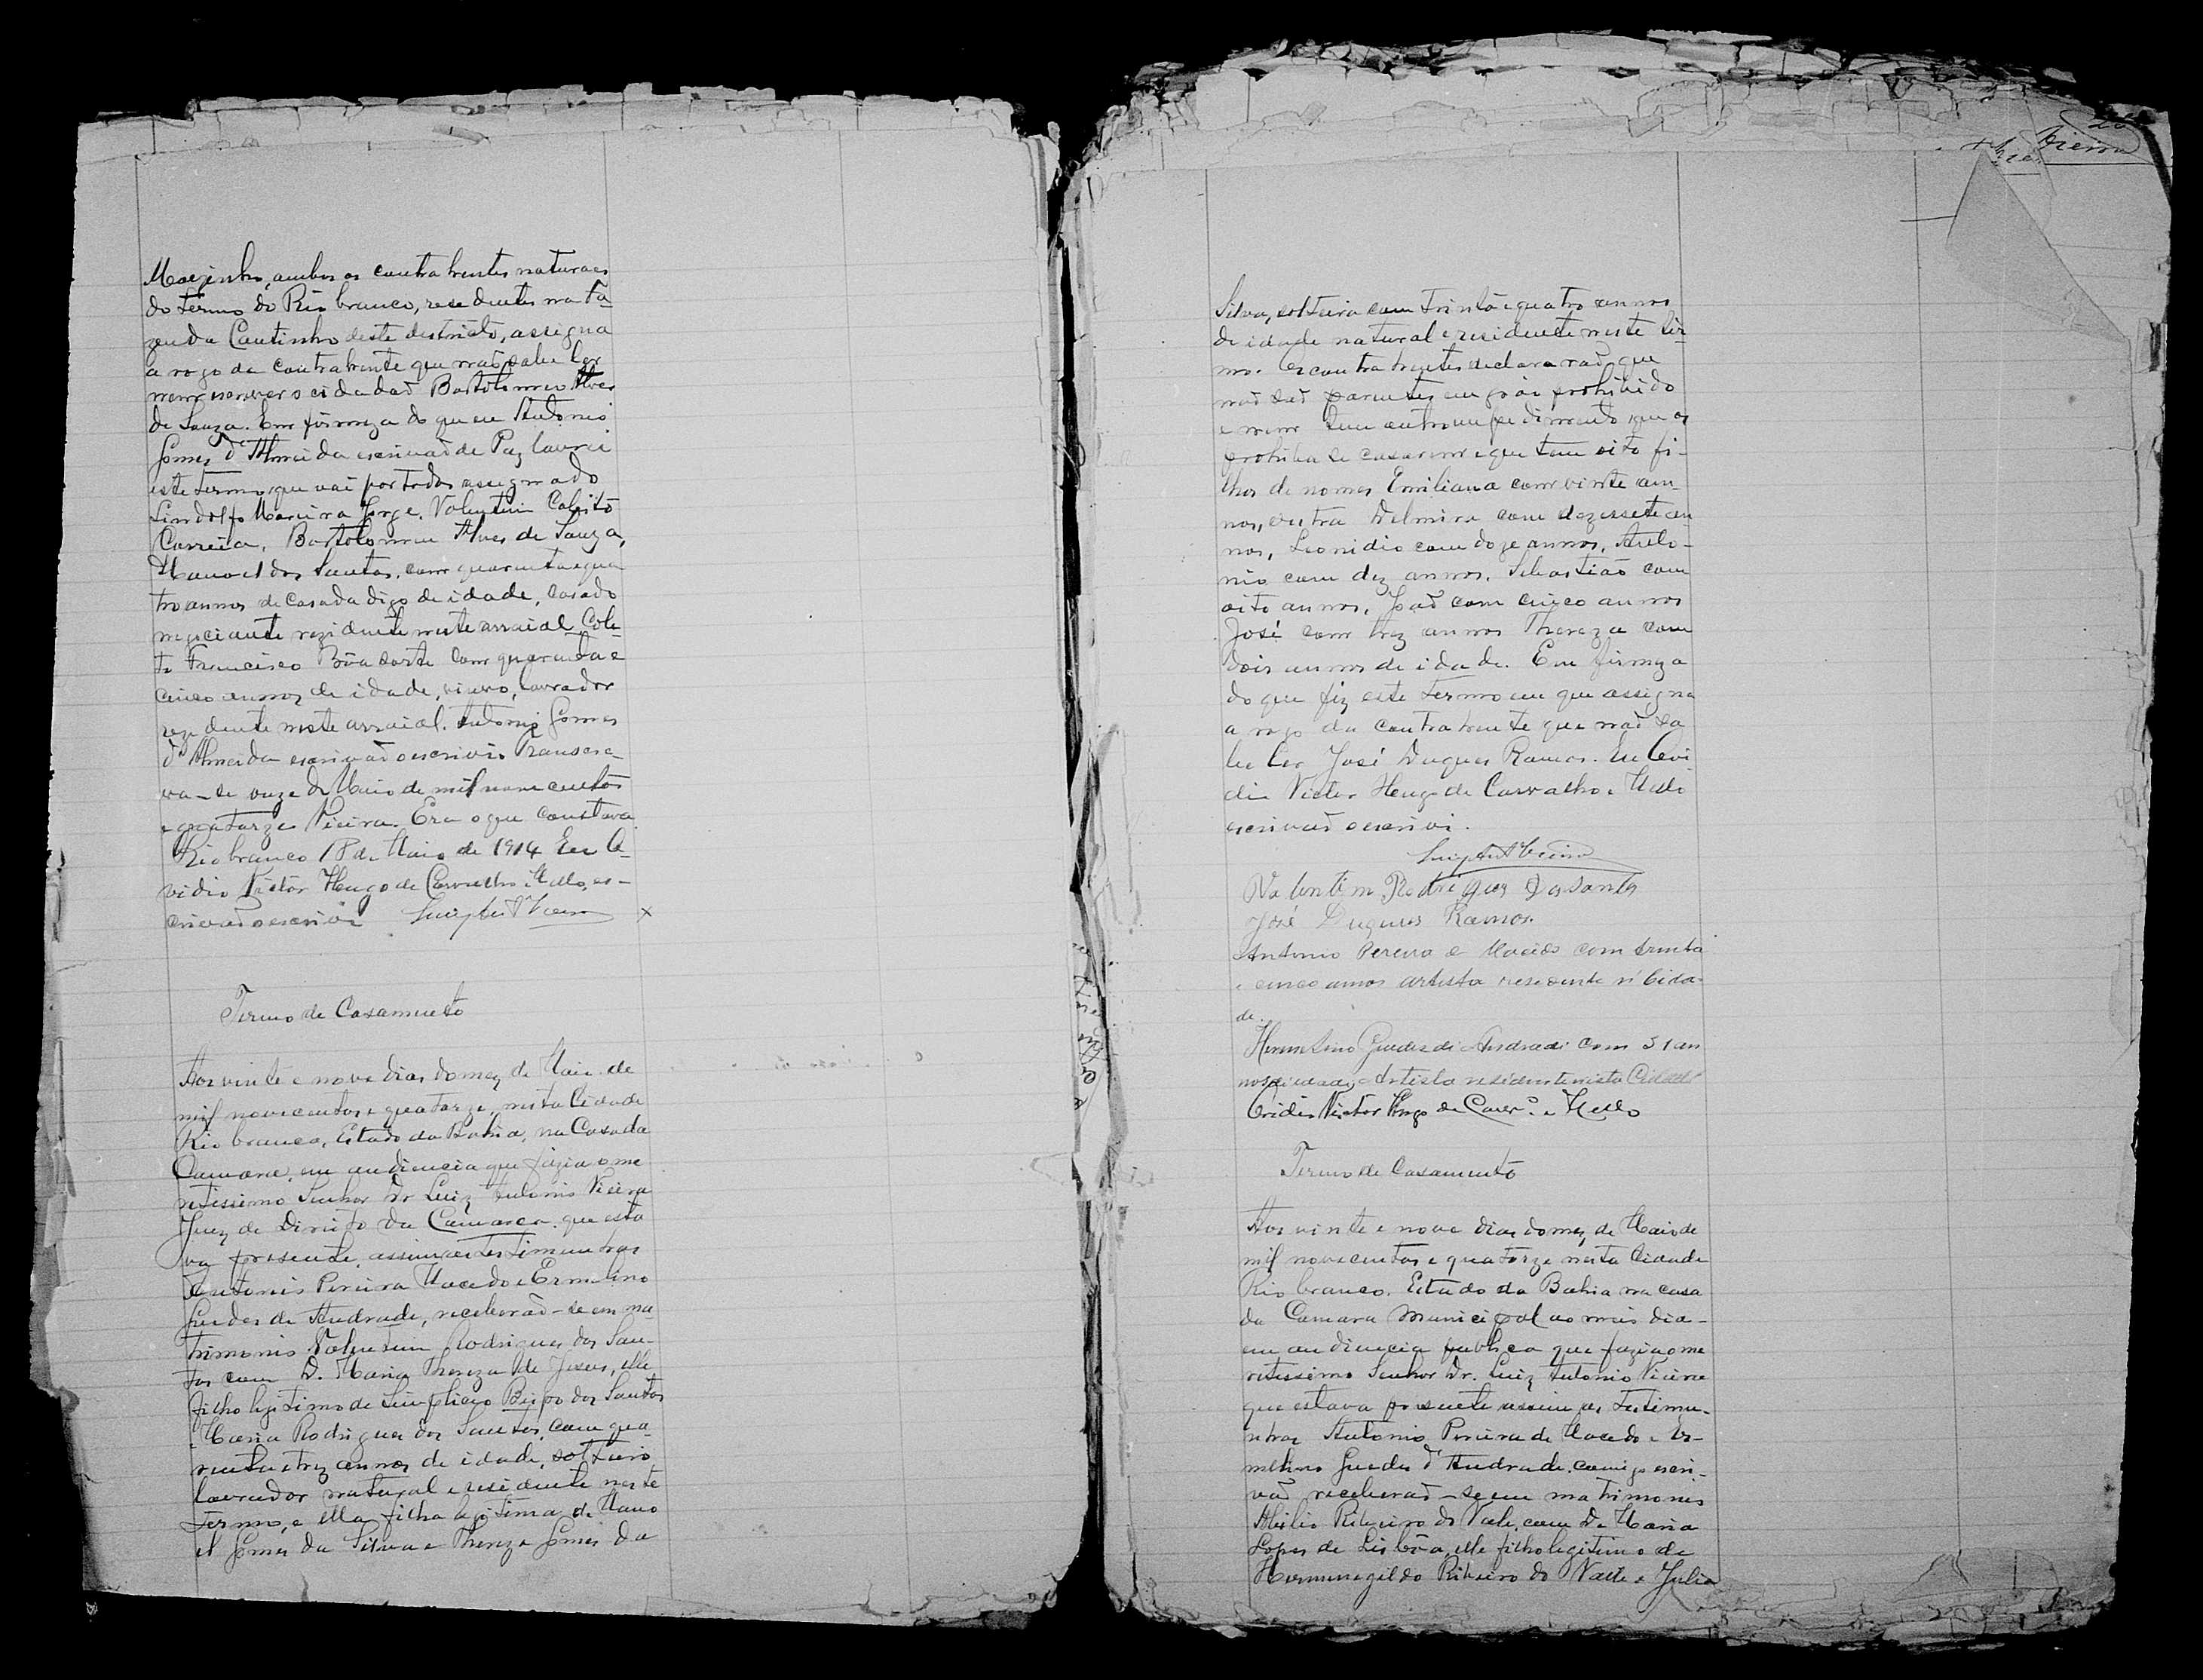 Marinho, ambos os contrahentes naturaes
do termo do Rio branco, residentes na fa-
zenda Cantinho deste destricto, assigna
a rogo da contrahente que não sabe ler
nem escrever o cidadão Bartolomeu Alves
de Souza. Em firmeza do que eu Antonio
Gomes d'Almeida escrivão de Paz lavrei
este termo que vai por todos assignado
Lindolfo Moreira Jorge. Valentim Calisto
Correia, Bartolomeu Alves de Souza,
Manoel dos Santos, com quarenta e qua
tro annos de casada digo de idade, casado
negociante rezidente neste arraial Cole-
to Francisco Bôa sorte com quarenta e
cinco annos de idade, viuvo, lavrador
rezidente neste arraial. Antonio Gomes
d'Almeida escrivão o escrivi. Transcre-
va-se onze de Maio de mil nove centos
e quatorze Vieira. Era o que constava.
Rio branco 18 de Maio de 1914 Eu O-
vidio Victor Hugo de Carvalho e Mello, es-
crivão o escrivi Luiz Ant Vieira X
Termo de Casamento
Aos vinte e nove dias do mez de Maio de
mil novecentos e quatorze, nesta Cidade
Rio branco, Estado da Bahia, na Casa da
Camara, em audiencia que fazia o me
retissimo Senhor Dr Luiz Antonio Vieira
Juiz de Direito da Comarca que esta
va presente, assim as testimunhas
Antonio Pereira Macedo e Ermelino
Guedes de Andrade, receberão-se em ma
trimonio Valentim Rodrigues dos San-
tos com D. Maria Thereza de Jesus, elle
filho legitimo de Simplicio Bispo dos Santos
e Maria Rodrigues dos Santos, com qua-
renta e trez annos de idade, solteiro
lavrador natural e residente neste
termo, e ella filha legitima de Mano
el Gomes da Silva e Thereza Gomes da
Vieira
Silva, solteira com trinta e quatro annos
de idade natural e residente neste ter-
mo. Os contrahentes declararão que
não são parentes em gráo prohibido
e nem tem outro impedimento que os
prohiba de casarem e que tem oito fi-
lhos de nomes Emiliana com vinte an-
nos, outra Delmira com dezessete an
nos, Leonidio com doze annos, Anto-
nio com dez annos, Sebastião com
oito annos, João com cinco annos
José com trez annos Thereza com
dois annos de idade. Em firmeza
do que fiz este termo em que assigna
a rogo da contrahente que não sa
be ler José Duques Ramos. Eu Ovi
dio Victor Hugo de Carvalho e Mello
escrivão o escrivi.
Luiz Ant Vieira
Valentim Rodrigues dos Santos
José Duques Ramos.
Antonio Pereira de Macedo com trinta
e cinco annos artista residente n' Cida-
de.
Hermelino Guedes de Andrade com 31 an
nos de idade, Artista residente nesta Cidade
Ovidio Victor Hugo de Carvº. e Mello
Termo de Casamento
Aos vinte e nove dias do mez de Maio de
mil novecentos e quatorze nesta Cidade
Rio branco, Estado da Bahia na casa
da Camara Municipal ao meio dia-
em audiencia publica que fazia o me
retissimo Senhor Dr. Luiz Antonio Vieira
que estava presente assim as testemu-
nhas Antonio Pereira de Macedo e Er-
melino Guedes d'Andrade, comigo escri-
vão receberão-se em matrimonio
Abilio Ribeiro do Valle, com Da Maria
Lopes de Lisbôa, elle filho legitimo de
Hermenegildo Ribeiro do Valle e Julia